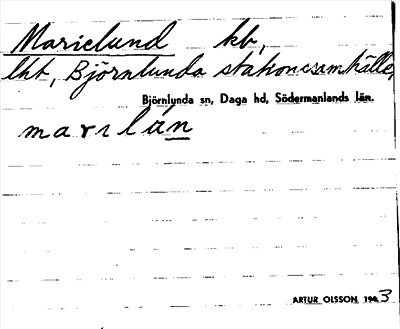 Marielund kb,
lht, Björnlunda stationssamhälle,
Björnlunda sn, Daga hd, Södermanlands län.
marilán
ARTUR OLSSON 1943